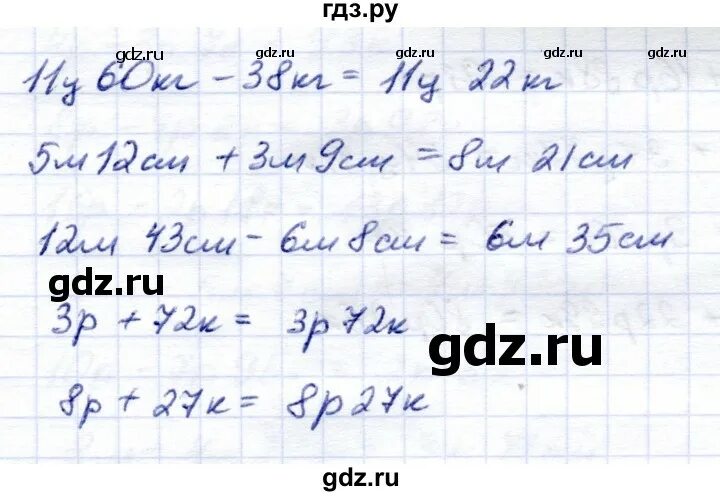 гдз.ру
gdz.ru gdz.ru gdz.ru
11ц 60кг - 38кг = 11ц 22кг
gdz.ru gdz.ru
5м 12см + 3м 9см = 8м 21см
gdz.ru gdz.ru gdz.ru
12м 43см - 6м 8см = 6м 35см
gdz.ru
3р + 72к = 3р 72к
gdz.ru
8р + 27к = 8р 27к
gdz.ru gdz.ru
gdz.ru